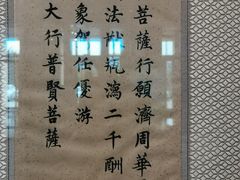 菩薩行願濟周華
法猷瓶瀉二千酬
象駕任優游
大行普賢菩薩